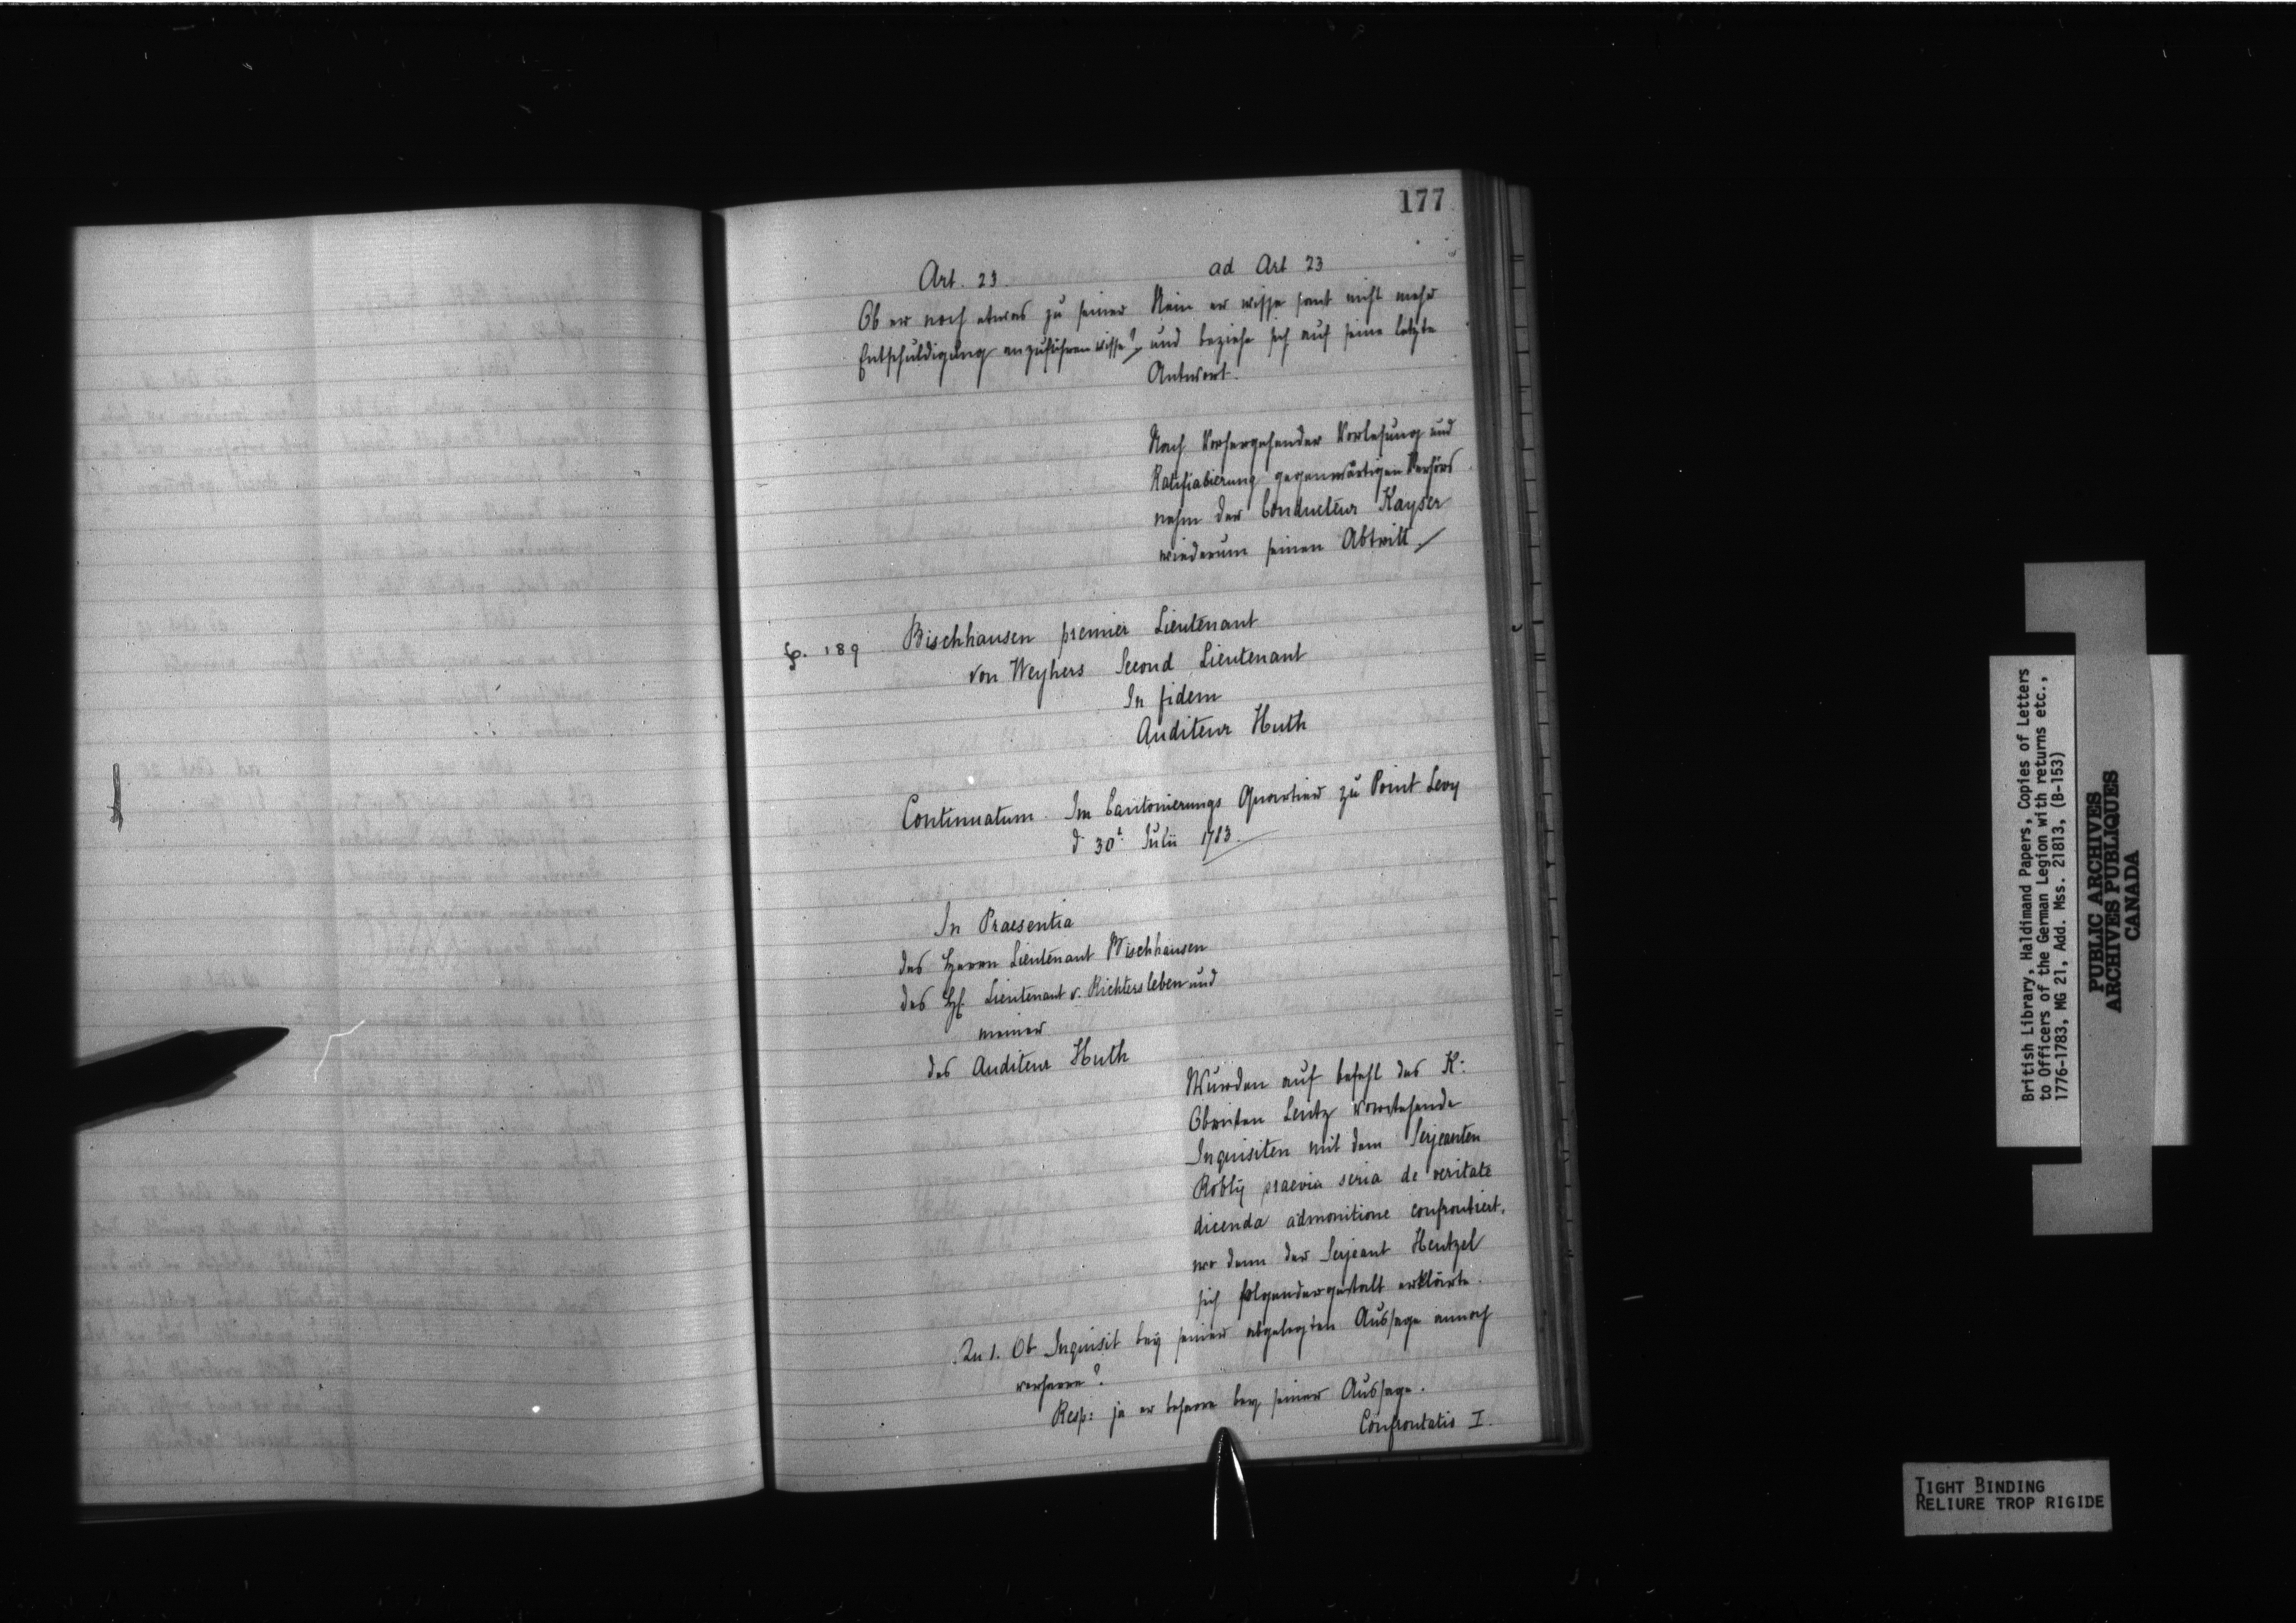 177
Art. 23.
Ob er noch etwas zu seiner
Entschuldigung anzuführen wisse?
ad Art 23
Nein er wisse sonst nicht mehr
und beziehe sich auf seine letzte
Antwort.
Nach Vorhergehender Vorlesung und
Ratifiabierung gegenwärtigen Verhörs
nahm der Conducteur Kayser
wiederum seinen Abtritt
p. 189
Bischhausen premier Lieutenant
von Weyhers Second Lieutenant
In fidem
Auditeur Huth
Continuatum. Im Cantonierungs Quartier zu Point Levy
d 30t. Julii 1783.
In Praesentia
des Herrn Lieutenant Bischhausen
des H. Lieutenant v. Richtersleben und
meiner
des Auditeur Huth
Wurden auf befehl des H:
Obristen Lentz vorstehende
Inquisiten mit dem Serjeanten
Robly praevia seria de veritate
dicenda admonitione confrontiert,
wo denn der Serjeant Hentzel
sich folgendergestalt erklärte.
Zu 1. Ob Inquisit bey seiner abgelegten Aussage annoch
verharre?
Resp: ja er beharre bey seiner Aussage.
Confrontatio I.
British Library, Haldimand Papers, Copies of Letters
to Officers of the German Legion with returns etc.,
1776-1783, MG 21, Add. Mss. 21813, (B-153)
PUBLIC ARCHIVES
ARCHIVES PUBLIQUES
CANADA
TIGHT BINDING
RELIURE TROP RIGIDE